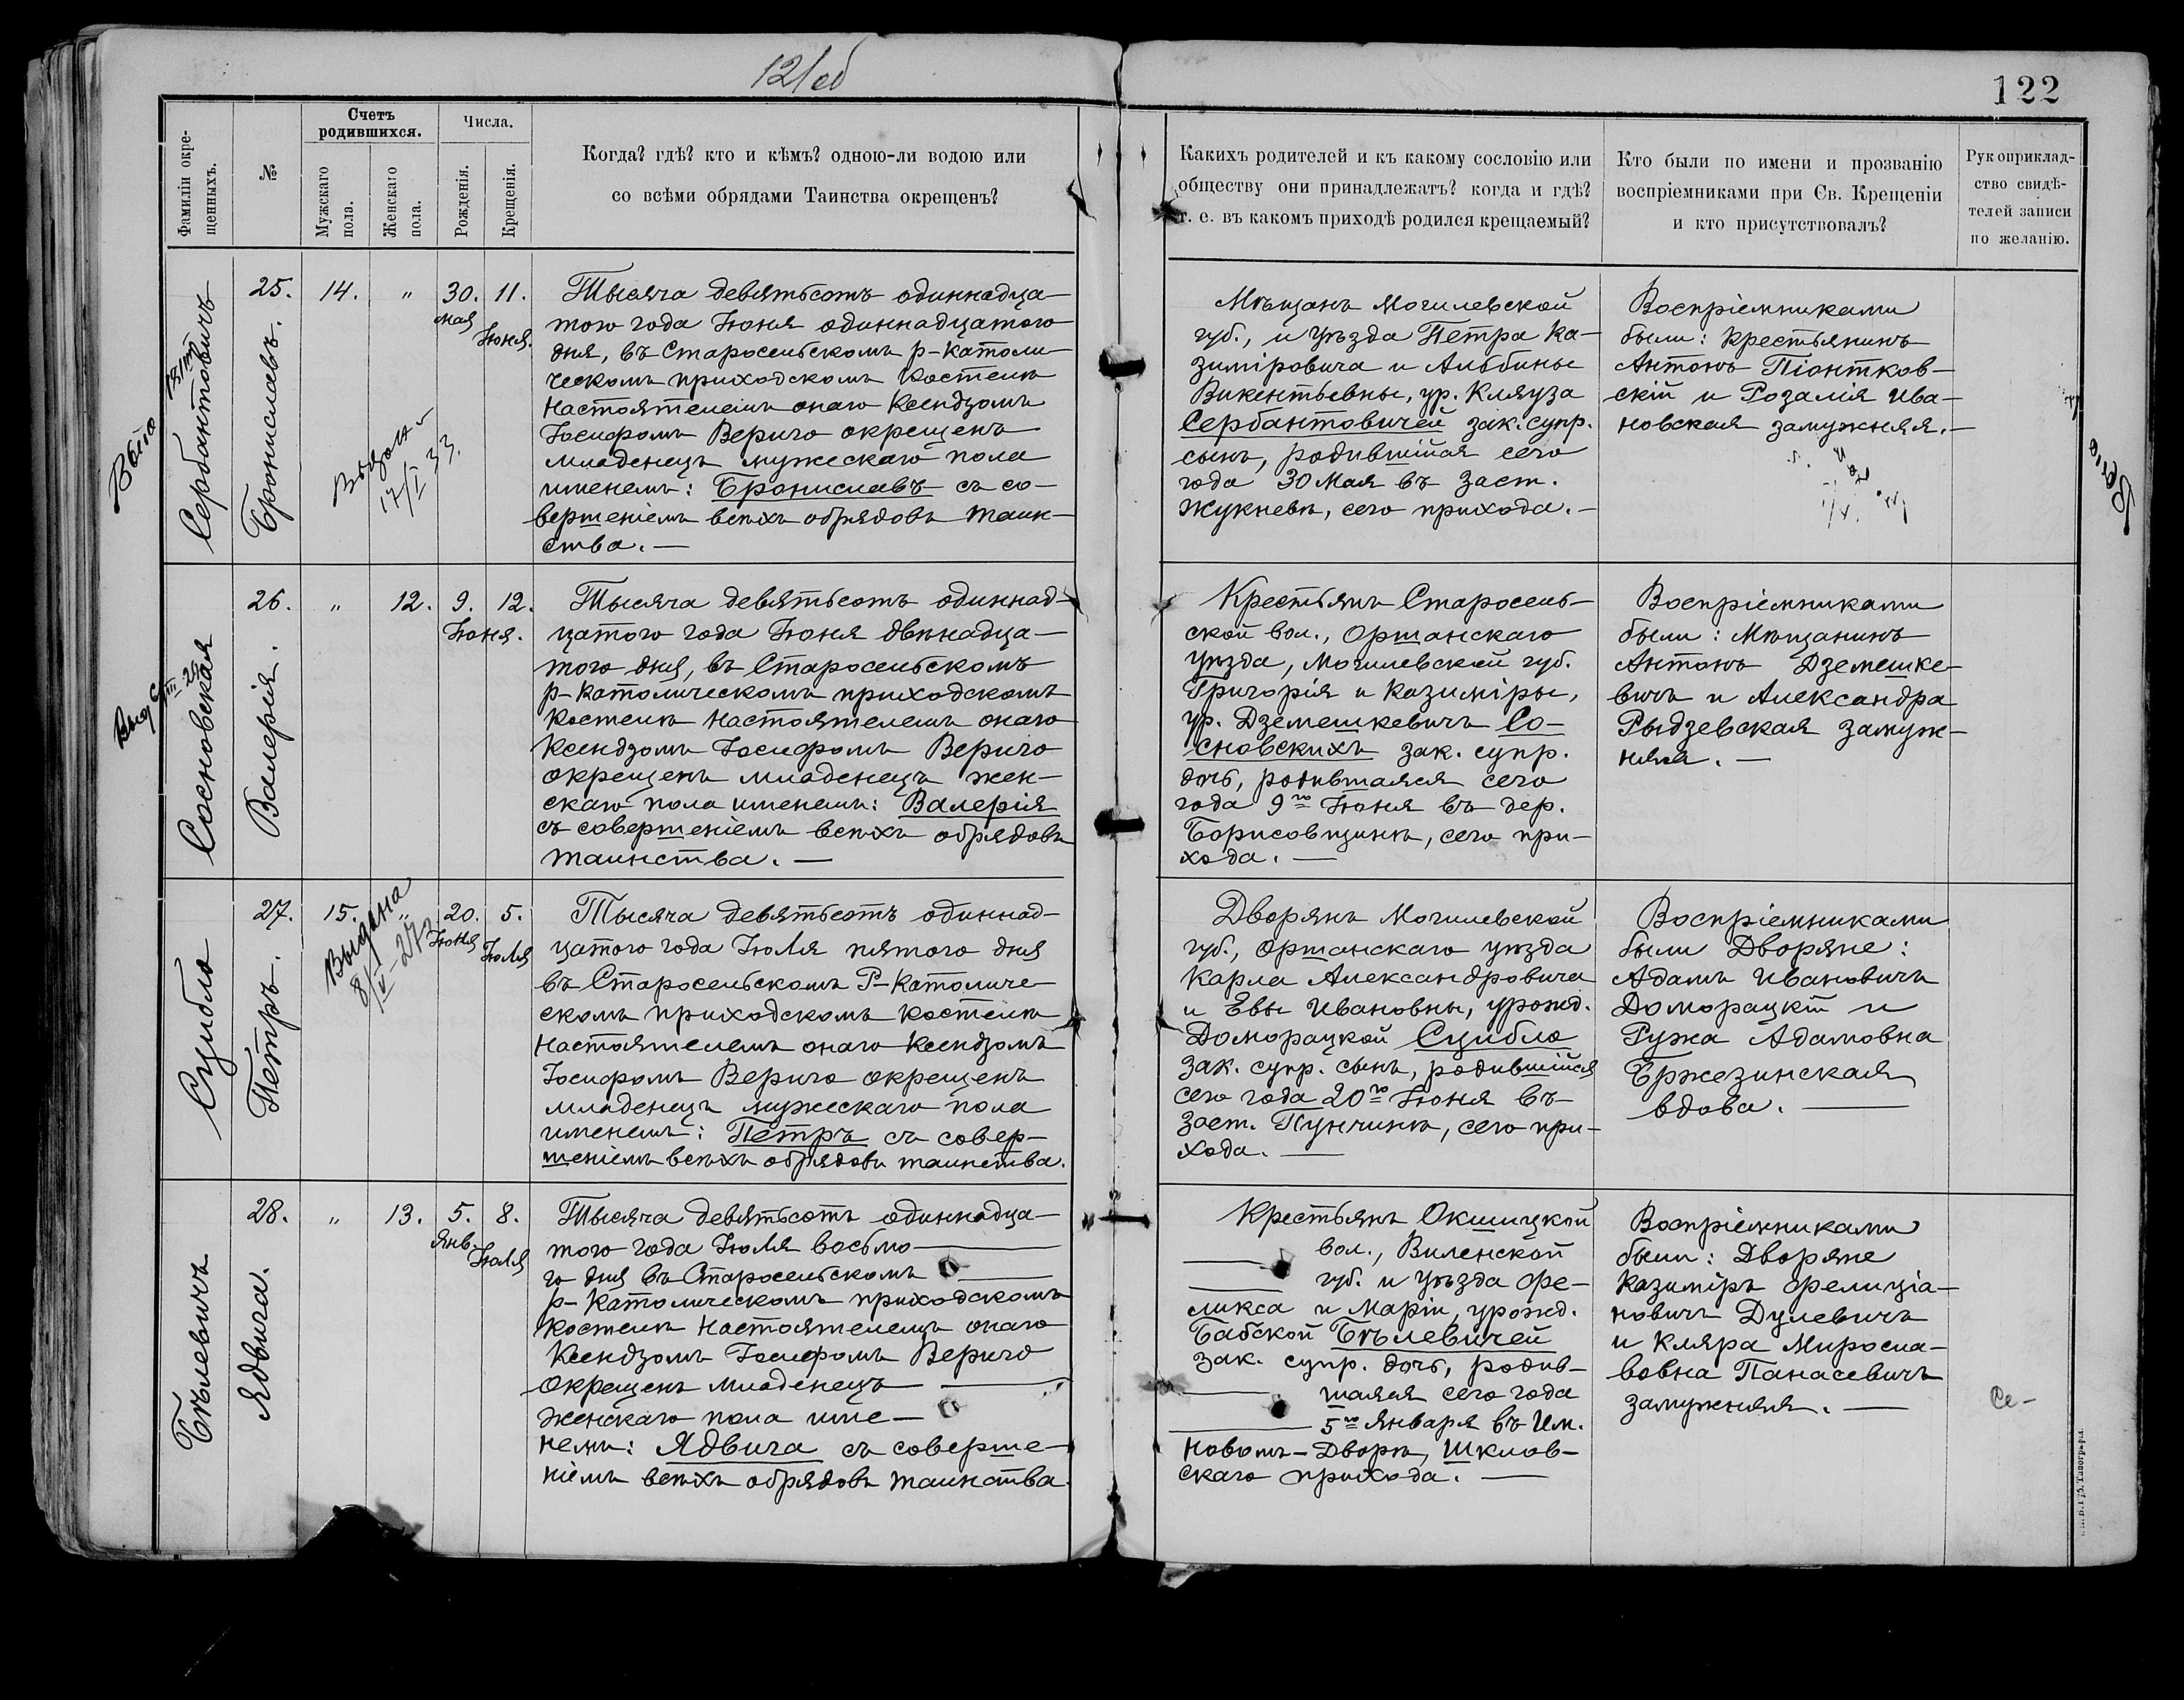 121 об
122
Фамиліи окре-
щенныхъ.
№
Счетъ
родившихся.
Мужскаго
пола.
Женскаго
пола.
Числа.
Рожденія.
Крещенія.
Когда? гдѣ? кто и кѣмъ? одною-ли водою или
со всѣми обрядами Таинства окрещенъ?
Какихъ родителей и къ какому сословію или
обществу они принадлежатъ? когда и гдѣ?
т. е. въ какомъ приходѣ родился крещаемый?
Кто были по имени и прозванію
воспріемниками при Св. Крещеніи
и кто присутствовалъ?
Рукоприклад-
ство свидѣ-
телей записи
по желанію.
Сербантовичъ
Брониславъ.
25.
14.
"
30.
мая
11.
Іюня.
17/I 33.
Тысяча девятьсотъ одиннадца-
того года Іюня одиннадцатого
дня, въ Старосельскомъ р-католи-
ческомъ приходскомъ костелѣ
Настоятелемъ онаго Ксендзомъ
Іосифомъ Верыго окрещенъ
младенецъ мужескаго пола
именемъ: Брониславъ съ со-
вершеніемъ всѣхъ обрядовъ таин-
ства. —
Мѣщанъ Могилевской
губ., и уѣзда Петра Ка-
зиміровича и Альбины
Викентьевны, ур. Кляуза
Сербантовичей зак. супр.
сынъ, родившійся сего
года 30 Мая въ заст.
Жукневѣ, сего прихода. —
Воспріемниками
были: Крестьянинъ
Антонъ Піонтков-
скій и Розалія Ива-
новская замужняя. —
Сосновская
Валерія.
26.
"
12.
9.
12.
Іюня.
Тысяча девятьсотъ одиннад-
цатого года Іюня двѣнадца-
того дня, въ Старосельскомъ
р-католическомъ приходскомъ
костелѣ Настоятелемъ онаго
Ксендзомъ Іосифомъ Верыго
окрещенъ младенецъ жен-
скаго пола именемъ: Валерія
съ совершеніемъ всѣхъ обрядовъ
таинства. —
Крестьянъ Старосель-
ской вол., Оршанскаго
уѣзда, Могилевской губ.
Григорія и Казиміры,
ур. Дземешкевичъ Со-
сновскихъ зак. супр.
дочь, родившаяся сего
года 9го Іюня въ дер.
Борисовщинѣ, сего при-
хода. —
Воспріемниками
были: Мѣщанинъ
Антонъ Дземешке-
вичъ и Александра
Рыдзевская замуж-
няя. —
Сцибло
Петръ.
27.
15.
"
20.
Іюня
5.
Іюля
Выдана
Тысяча девятьсотъ одиннад-
цатого года Іюля пятого дня
въ Старосельскомъ Р-католиче-
скомъ приходскомъ костелѣ
Настоятелемъ онаго Ксендзомъ
Іосифомъ Верыго окрещенъ
младенецъ мужескаго пола
именемъ: Петръ съ совер-
шеніемъ всѣхъ обрядовъ таинства.
Дворянъ Могилевской
губ., Оршанскаго уѣзда
Карла Александровича
и Евы Ивановны, урожд.
Доморацкой Сцибло
зак. супр. сынъ, родившійся
сего года 20го Іюня въ
заст. Пунчинѣ, сего при-
хода. —
Воспріемниками
были Дворяне:
Адамъ Ивановичъ
Доморацкій и
Ружа Адамовна
Бржезинская
вдова. —
Бѣлевичъ
Ядвига.
28.
"
13.
5.
Янв.
8.
Іюля
Тысяча девятьсотъ одиннадца-
того года Іюля восьмо —
го дня въ Старосельскомъ —
р-католическомъ приходскомъ
костелѣ Настоятелемъ онаго
Ксендзомъ Іосифомъ Верыго
окрещенъ младенецъ —
женскаго пола име —
немъ: Ядвига съ соверше-
ніемъ всѣхъ обрядовъ таинства.
Крестьянъ Окшицкой
— вол., Виленской
— губ. и уѣзда Фе-
ликса и Маріи, урожд.
Бабской Бѣлевичей
зак. супр. дочь, родив-
— шаяся сего года
— 5го Января въ Им.
Новомъ-Дворѣ, Шклов-
скаго прихода. —
Воспріемниками
были: Дворяне
Казиміръ Фелиціа-
новичъ Дулевичъ
и Кляра Миросла-
вовна Панасевичъ
замужняя. —